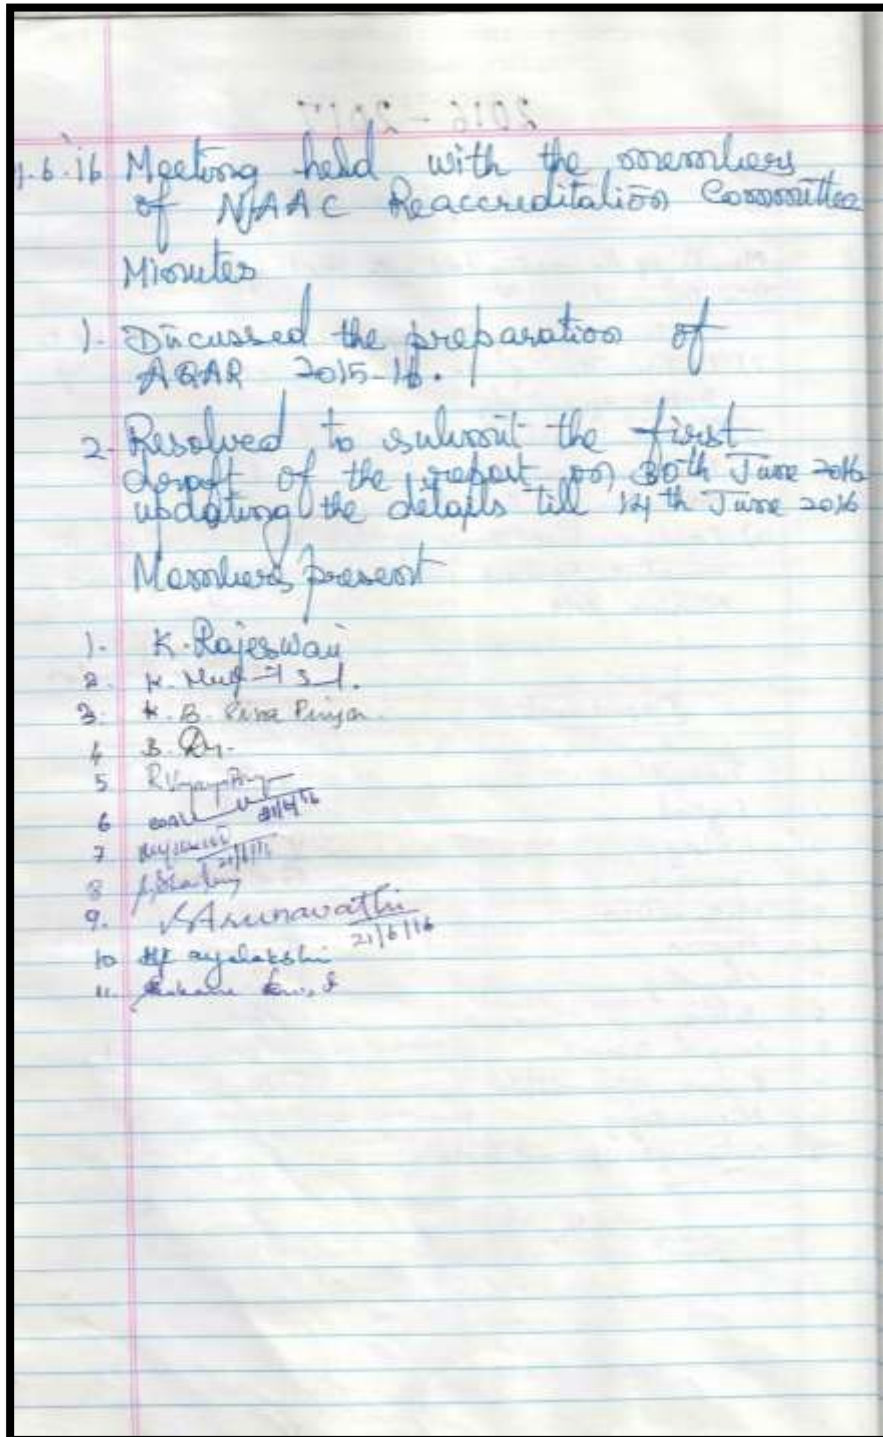 2016 - 2017
1.6.16 Meeting held with the members
of NAAC Reaccreditation Committee
Minutes
1. Discussed the preparation of
AQAR 2015-16.
2. Resolved to submit the first
draft of the report on 30th June 2016
updating the details till 14th June 2016
Members present
1. K. Rajeswari
2. K.
3. K. B. Siva Priya
4 B.
5 R. Vijaya Priya
6 21/6/16
7 21/6/16
8
9. V. Arunavathi
21/6/16
10
11.